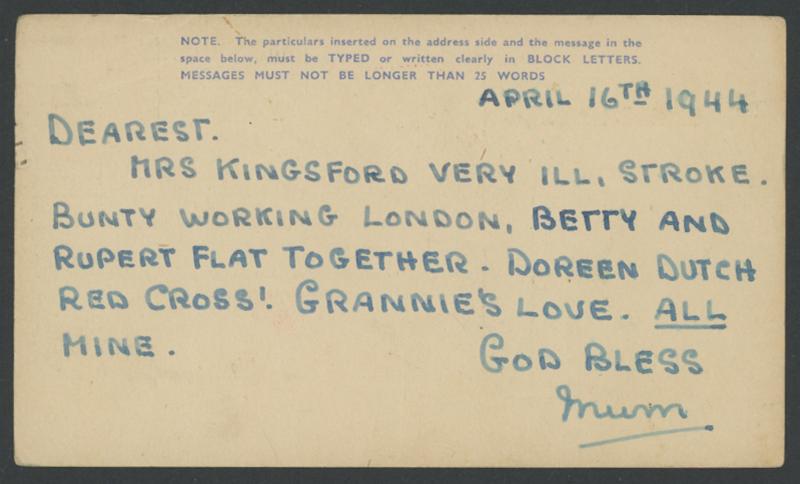 NOTE. The particulars inserted on the address side and the message in the
space below, must be TYPED or written clearly in BLOCK LETTERS.
MESSAGES MUST NOT BE LONGER THAN 25 WORDS
APRIL 16TH 1944
DEAREST.
MRS KINGSFORD VERY ILL, STROKE.
BUNTY WORKING LONDON, BETTY AND
RUPERT FLAT TOGETHER. DOREEN DUTCH
RED CROSS!. GRANNIE'S LOVE. ALL
MINE. GOD BLESS
Mum